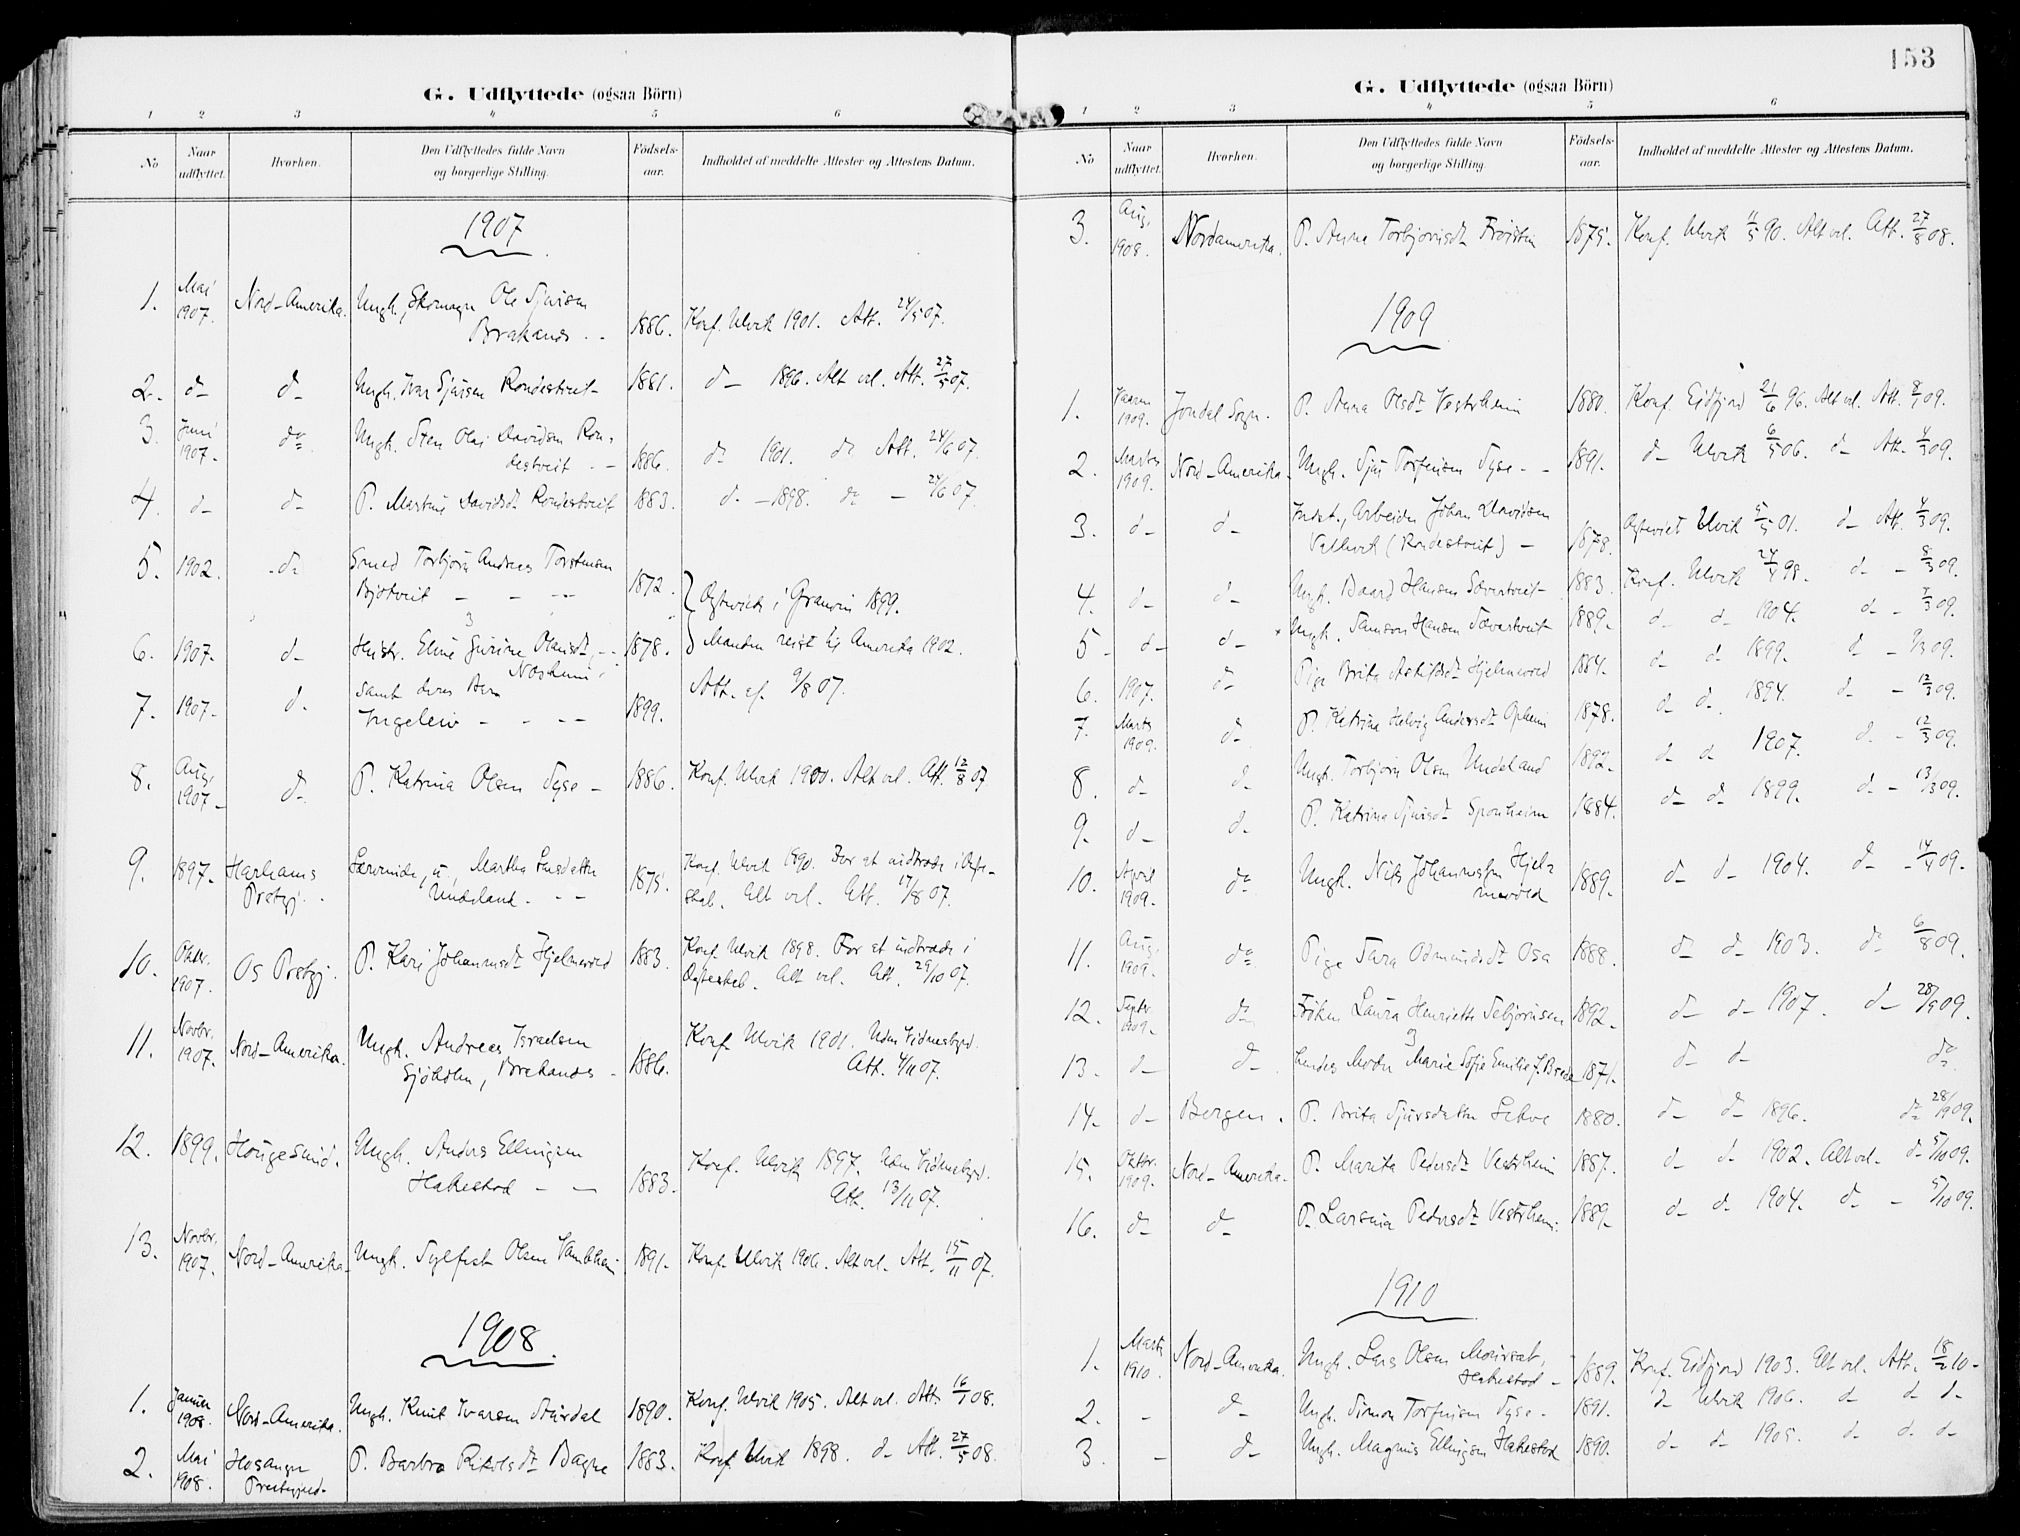 153
G. Udflyttede (ogsaa Börn)
1 2 3 4 5 6
No
Naar udflyttet.
Hvorhen.
Den Udflyttedes fulde Navn og borgerlige Stilling.
Födselsaar.
Indholdet af meddelte Attester og Attestens Datum.
1907
1. Mai 1907. Nord-Amerika. Ungk., Skomager Ole Sjursen
Brakanes - - 1886. Konf. Ulvik 1901. Att. 24/5 07.
2. d- d- Ungk. Ivar Sjursen Rondestveit- 1881. d- 1896. Alt vel. Att. 27/5 07.
3. Juni 1907- do Ungk. Sten Olai Davidsen Ron-
destveit - - 1886. do 1901. do Att. 24/6 07.
4. d- d- P. Martine Davidsdt Rondestveit 1883. d- 1898. do - 24/6 07.
5. 1902. do Smed Torbjörn Andreas Torsteinsen
Bjotveit - - - - 1872. Ægteviet i Granvin 1899.
6. 1907- d- Hustr. Eline Gurine Olansdt, - - 1878. Manden reist til Amerika 1902.
Nesheim
7. 1907- d- samt deres Barn
Ingeleiv - - - - 1899. Att. ef. 9/8 07.
8. Aug. 1907- d- P. Katrina Olsen Tyse - 1886. Konf. Ulvik 1900. Alt vel. Att. 12/8 07
9. 1897- Harhams Prstgj. Lærerinde, u. Martha Larsdatter
Undeland. - - 1875. Konf. Ulvik 1890. For at indtræde i Ægte-
skab. Alt vel. Att. 17/8 07.
10. Oktbr. 1907. Os Prstgj. P. Kari Johannesdt Hjelmevold 1883. Konf. Ulvik 1898. For at indtræde i
Ægteskab. Alt vel. Att. 29/10 07.
11. Novbr. 1907. Nord-Amerika. Ungk. Andreas Israelsen
Sjöholm, Brakanes - 1886. Konf. Ulvik 1901. Uden Vidnesbyrd.
Att. 4/11 07.
12. 1899. Hougesund. Ungk. Anders Ellingsen
Hakestad - - 1883. Konf. Ulvik 1897. Uden Vidnesbyrd.
Att. 13/11 07.
13. Novbr. 1907. Nord-Amerika- Ungk. Sylfest Olsen Vambheim 1891- Konf. Ulvik 1906. Alt vel. Att. 15/11 07.
1908.
1. Januar 1908. Nord-Amerika. Ungk. Knut Ivarsen 1890. Konf. Ulvik 1905. Alt vel. Att. 16/1 08.
2. Mai 1908. Hosanger Prestegjeld. P. Barbra Rikolsdt Bagne 1883. Konf. Ulvik 1898. d- Att. 27/5 08.
G. Udflyttede (ogsaa Börn)
1 2 3 4 5 6
No
Naar udflyttet.
Hvorhen.
Den Udflyttedes fulde Navn og borgerlige Stilling.
Födselsaar.
Indholdet af meddelte Attester og Attestens Datum.
3. Aug. 1908. Nordamerika. P. Anna Torbjörnsdt Fröistein 1875. Konf. Ulvik 11/5 90. Alt vel. Att. 27/8 08.
1909
1. Vaaren 1909. Jondal Sogn. P. Anna Olsdt Vestrheim 1880. Konf. Eidfjord 21/6 96. Alt vel. Att. 8/1 09.
2. Marts 1909. Nord-Amerika- Ungk. Sjur Torfinsen Tyse - - 1891. d- Ulvik 6/5 06. d- Att. 4/3 09.
3. d- d- Indst., Arbeider Johan Davidsen
Vallevik (Rondestveit) - 1878. Ægteviet Ulvik 5/5 01. d- Att. 4/3 09.
4. d- d- Ungk. Baard Hansen Sævartveit- 1883. Konf. Ulvik 24/4 98. d- - 8/3 09.
5- d- d- Ungk. Samson Hansen Sævartveit 1889- d- d- 1904. d- - 7/3 09.
6. 1907. d- Pige Brita Hjelmevold 1884. d- d- 1899. d- - 9/3 09.
7. Marts 1909. d- P. Katrine Helvig Andersdt Opheim 1878. d- d- 1894. d- - 12/3 09.
8. d- d- Ungk. Torbjörn Olsen Undeland 1892- d- d- 1907. d- - 12/3 09.
9. d- d- P. Katrina Sjursdt Sponheim 1884. d- d- 1899. d- - 13/3 09.
10. April 1909- do Ungk. Nils Johannessen Hjel-
mevold 1889- d- d- 1904. d- - 14/4 09-
11. Aug. 1909. do Pige Sara Odmundsdt Osa 1888. d- d- 1903. do 6/8 09.
12. Septbr. 1909- d- Fröken Laura Henriette Tebjörnsen 1892- d- d- 1907. d- 28/9 09.
13. d- d- Hendes Moder Marie Sofie Emilie f. Brede 1871. d- d- do
14. d- Bergen. P. Brita Sjursdatter Lekve 1880. d- d- 1896. do 28/9 09.
15. Oktbr. 1909- Nord-Amerika- P. Marita Pedersdt Vestrheim 1887. d- d- 1902. Alt vel- d- 5/10 09.
16. d- d- P. Larsina Pedersdt Vestrheim. 1889- d- d- 1904. d- - 5/10 09.
1910
1. Marts 1910. Nord-Amerika. Ungk. Lars Olsen Maursæt,
Hakestad - 1889. Konf. Eidfjord 1903. Alt vel. Att. 18/2 10-
2. - d- Ungk. Simon Torfinsen Tyse- 1891. d- Ulvik 1906. d- d- d-
3 - d- Ungk. Magnus Ellingsen Hakestad 1890. d- d- 1905. d- d- d-